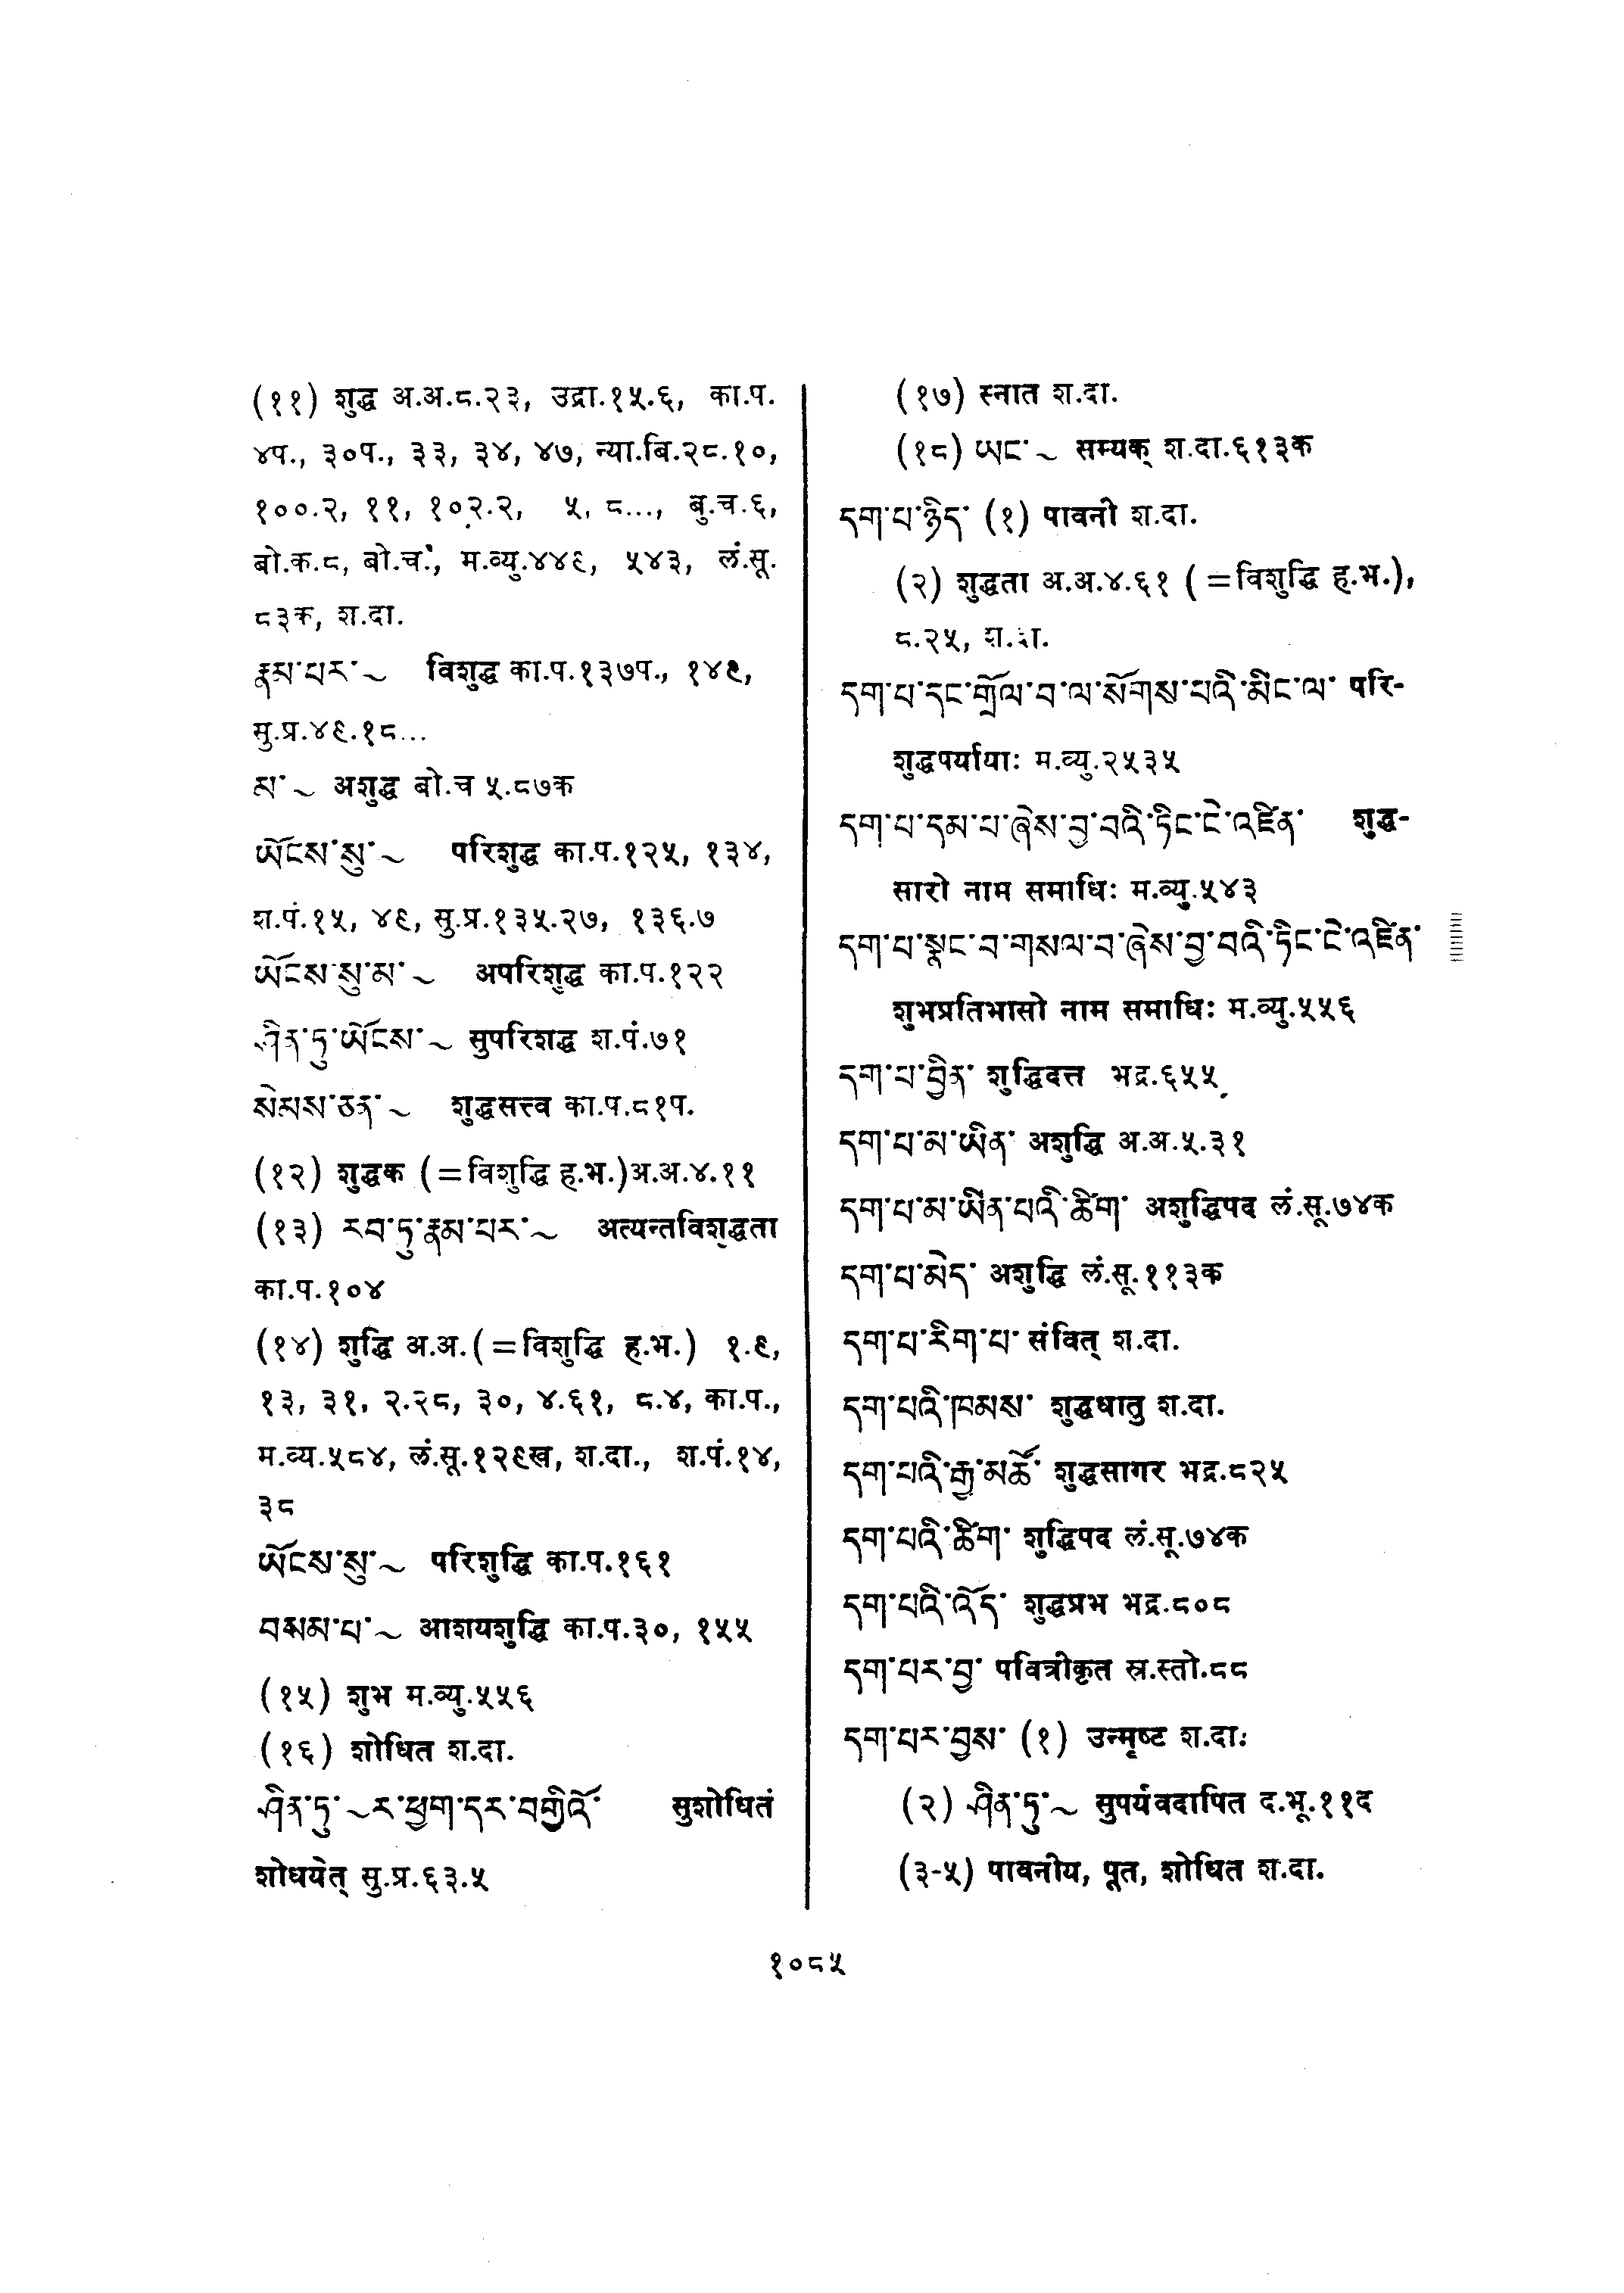 (११) शुद्ध अ.अ.८.२३, उद्रा.१५.६, का.प.
४प., ३०प., ३३, ३४, ४७, न्या.बि.२८.१०,
१००.२, ११, १०२.२, ५, ८..., बु.च.६,
बो.क.८, बो.च., म.व्यु.४४९, ५४३, लं.सू.
८३क, श.दा.
རྣམ་པར་~ विशुद्ध का.प.१३७प., १४९,
सु.प्र.४९.१८...
མ་~ अशुद्ध बो.च ५.८७क
ཡོངས་སུ་~ परिशुद्ध का.प.१२५, १३४,
श.पं.१५, ४९, सु.प्र.१३५.२७, १३६.७
ཡོངས་སུ་མ་~ अपरिशुद्ध का.प.१२२
ཤིན་ཏུ་ཡོངས་~ सुपरिशद्ध श.पं.७१
སེམས་ཅན་~ शुद्धसत्त्व का.प.८१प.
(१२) शुद्धक (=विशुद्धि ह.भ.)अ.अ.४.११
(१३) རབ་ཏུ་རྣམ་པར་~ अत्यन्तविशुद्धता
का.प.१०४
(१४) शुद्धि अ.अ.(=विशुद्धि ह.भ.) १.९,
१३, ३१, २.२८, ३०, ४.६१, ८.४, का.प.,
म.व्य.५८४, लं.सू.१२९ख, श.दा., श.पं.१४,
३८
ཡོངས་སུ་~ परिशुद्धि का.प.१६१
བསམ་པ་~ आशयशुद्धि का.प.३०, १५५
(१५) शुभ म.व्यु.५५६
(१६) शोधित श.दा.
ཤིན་ཏུ་~ར་ཕྱག་དར་བགྱིའོ་ सुशोधितं
शोधयेत् सु.प्र.६३.५
(१७) स्नात श.दा.
(१८) ཡང་~ सम्यक् श.दा.६१३क
དག་པ་ཉིད་ (१) पावनी श.दा.
(२) शुद्धता अ.अ.४.६१ (=विशुद्धि ह.भ.),
८.२५, श.दा.
དག་པ་དང་གྲོལ་བ་ལ་སོགས་པའི་མིང་ལ་ परि-
शुद्धपर्यायाः म.व्यु.२५३५
དག་པ་དམ་པ་ཞེས་བྱ་བའི་ཏིང་ངེ་འཛིན་ शुद्ध-
सारो नाम समाधिः म.व्यु.५४३
དག་པ་སྣང་བ་གསལ་བ་ཞེས་བྱ་བའི་ཏིང་ངེ་འཛིན་
शुभप्रतिभासो नाम समाधिः म.व्यु.५५६
དག་པ་བྱིན་ शुद्धिदत्त भद्र.६५५
དག་པ་མ་ཡིན་ अशुद्धि अ.अ.५.३१
དག་པ་མ་ཡིན་པའི་ཚིག་ अशुद्धिपद लं.सू.७४क
དག་པ་མེད་ अशुद्धि लं.सू.११३क
དག་པ་རིག་པ་ संवित् श.दा.
དག་པའི་ཁམས་ शुद्धधातु श.दा.
དག་པའི་རྒྱ་མཚོ་ शुद्धसागर भद्र.८२५
དག་པའི་ཚིག་ शुद्धिपद लं.सू.७४क
དག་པའི་འོད་ शुद्धप्रभ भद्र.८०८
དག་པར་བྱ་ पवित्रीकृत स्र.स्तो.८८
དག་པར་བྱས་ (१) उन्मृष्ट श.दाः
(२) ཤིན་ཏུ་~ सुपर्यवदापित द.भू.११द
(३-५) पावनीय, पूत, शोधित श.दा.
१०८५